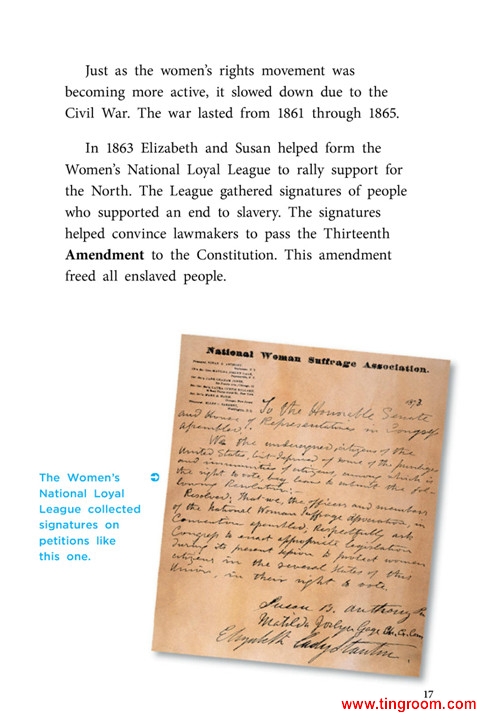 Just as the women's rights movement was
becoming more active, it slowed down due to the
Civil War. The war lasted from 1861 through 1865.
In 1863 Elizabeth and Susan helped form the
Women's National Loyal League to rally support for
the North. The League gathered signatures of people
who supported an end to slavery. The signatures
helped convince lawmakers to pass the Thirteenth
Amendment to the Constitution. This amendment
freed all enslaved people.
National Woman Suffrage Association.
1873
To the Honorable Senate
and House of Representatives in Congress
assembled:
We the undersigned citizens of the
United States, but deprived of some of the privileges
and immunities of citizens, among which is
the right to vote, beg leave to submit the fol-
lowing Resolution:—
Resolved, That we, the officers and members
of the National Woman Suffrage Association, in
Convention assembled, Respectfully ask
Congress to enact appropriate legislation
during its present session to protect women
citizens in the several States of this
Union, in their right to vote.
Susan B. Anthony
Matilda Joslyn Gage
Elizabeth Cady Stanton.
The Women's
National Loyal
League collected
signatures on
petitions like
this one.
17
www.tingroom.com